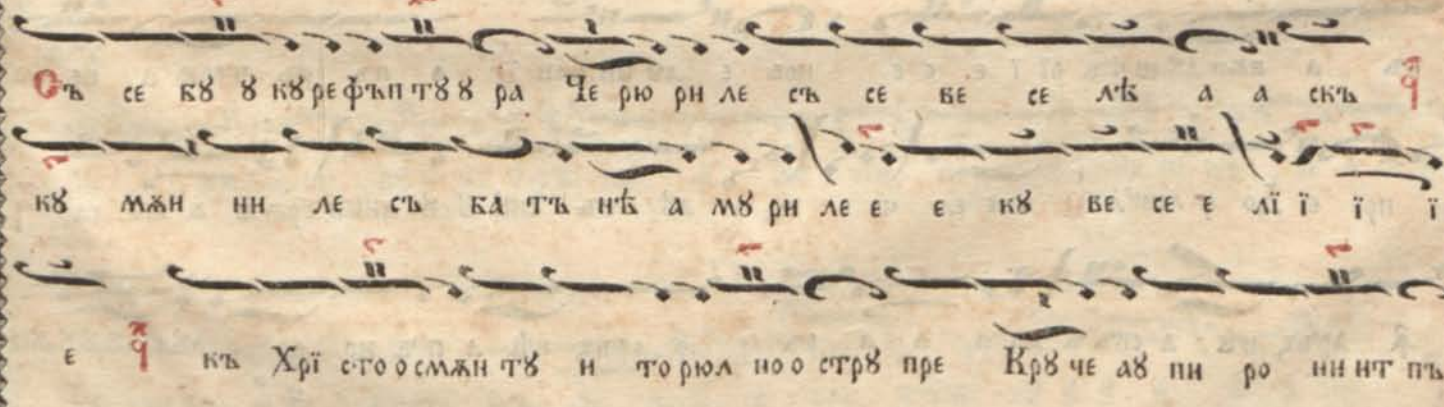 Съ се бꙋ ꙋ кꙋ ре фъп тꙋ ꙋ ра Че рю ри ле съ се ве се лѣ а а скъ
кꙋ мѫн ни ле съ ба тъ нѣ а мꙋ ри ле е е кꙋ ве се е лї ї ї ї
е къ Хрї сто о смѫн тꙋ и то рюл но о стрꙋ пре Крꙋ че аꙋ пи ро ни ит пъ